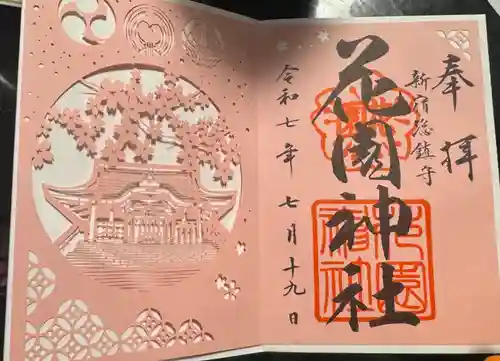 奉拝
新宿総鎮守
花園神社
令和七年 七月十九日